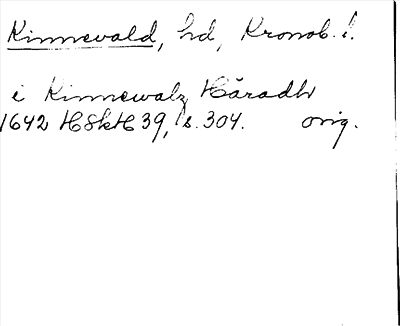 Kinnevald, hd, Kronob. l.
i Kinnewalz Häradh
1642 HSkH 39, s. 304. orig.